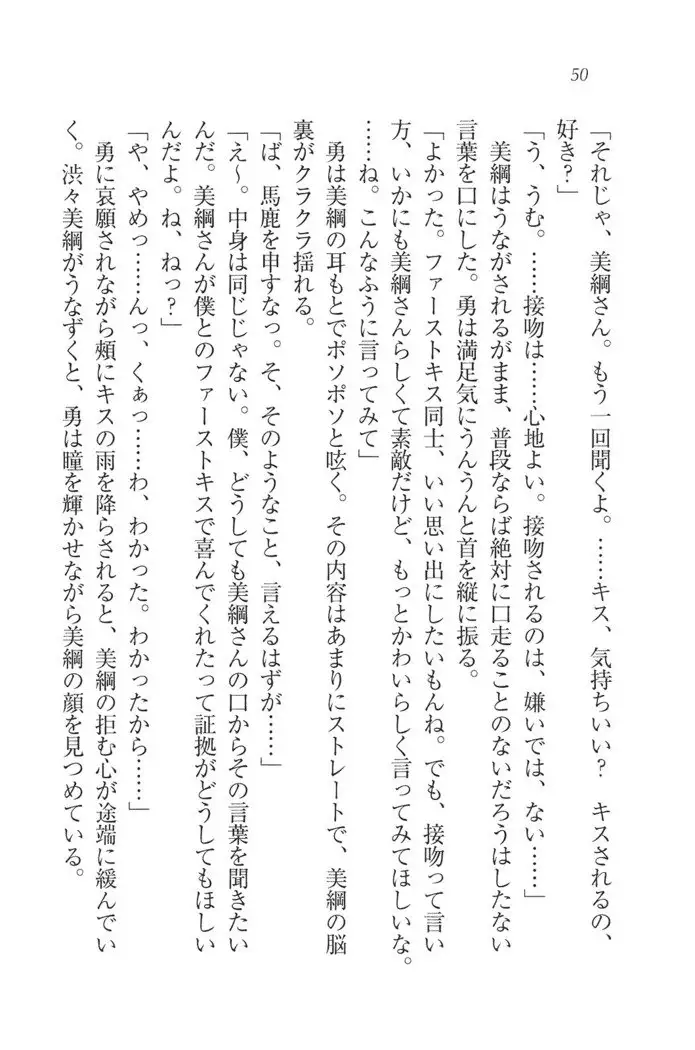 50
「それじゃ、美綱さん。もう一回聞くよ。……キス、気持ちいい?　キスされるの、
好き?」
「う、うむ。……接吻は……心地よい。接吻されるのは、嫌いでは、ない……」
美綱はうながされるがまま、普段ならば絶対に口走ることのないだろうはしたない
言葉を口にした。勇は満足気にうんうんと首を縦に振る。
「よかった。ファーストキス同士、いい思い出にしたいもんね。でも、接吻って言い
方、いかにも美綱さんらしくて素敵だけど、もっとかわいらしく言ってみてほしいな。
……ね。こんなふうに言ってみて」
勇は美綱の耳もとでポソポソと呟く。その内容はあまりにストレートで、美綱の脳
裏がクラクラ揺れる。
「ば、馬鹿を申すなっ。そ、そのようなこと、言えるはずが……」
「え～。中身は同じじゃない。僕、どうしても美綱さんの口からその言葉を聞きたい
んだ。美綱さんが僕とのファーストキスで喜んでくれたって証拠がどうしてもほしい
んだよ。ね、ねっ?」
「や、やめっ……んっ、くぁっ……わ、わかった。わかったから……」
勇に哀願されながら頬にキスの雨を降らされると、美綱の拒む心が途端に緩んでい
く。渋々美綱がうなずくと、勇は瞳を輝かせながら美綱の顔を見つめている。